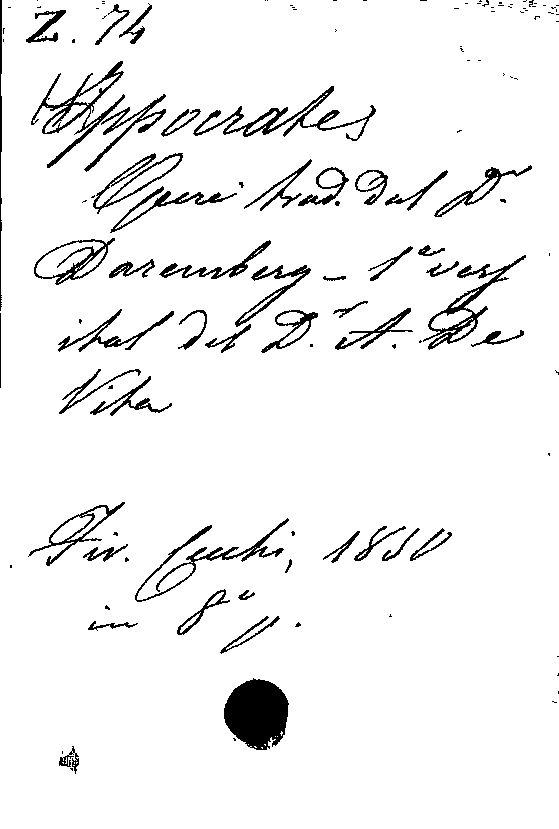 Z. 74
Hippocrates
Opere trad. dal Dr
Daremberg - 1a vers
ital del D.r A. De
Vita
Fir. Cecchi, 1850
in 8° p.